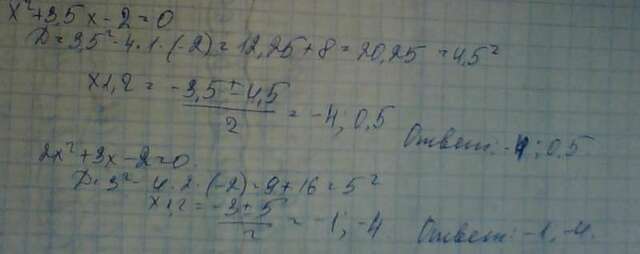 x²+3,5x-2=0
D=3,5²-4·1·(-2)=12,25+8=20,25=4,5²
x1,2 = -3,5±4,5 / 2 = -4; 0,5
Ответ: -4; 0,5
2x²+3x-2=0.
D=3²-4·2·(-2)=9+16=5²
x1,2 = -3±5 / 2 = -1; -4
Ответ: -1, -4.